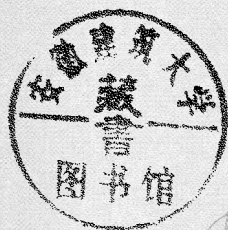 安徽建筑大学
藏
書
图书馆